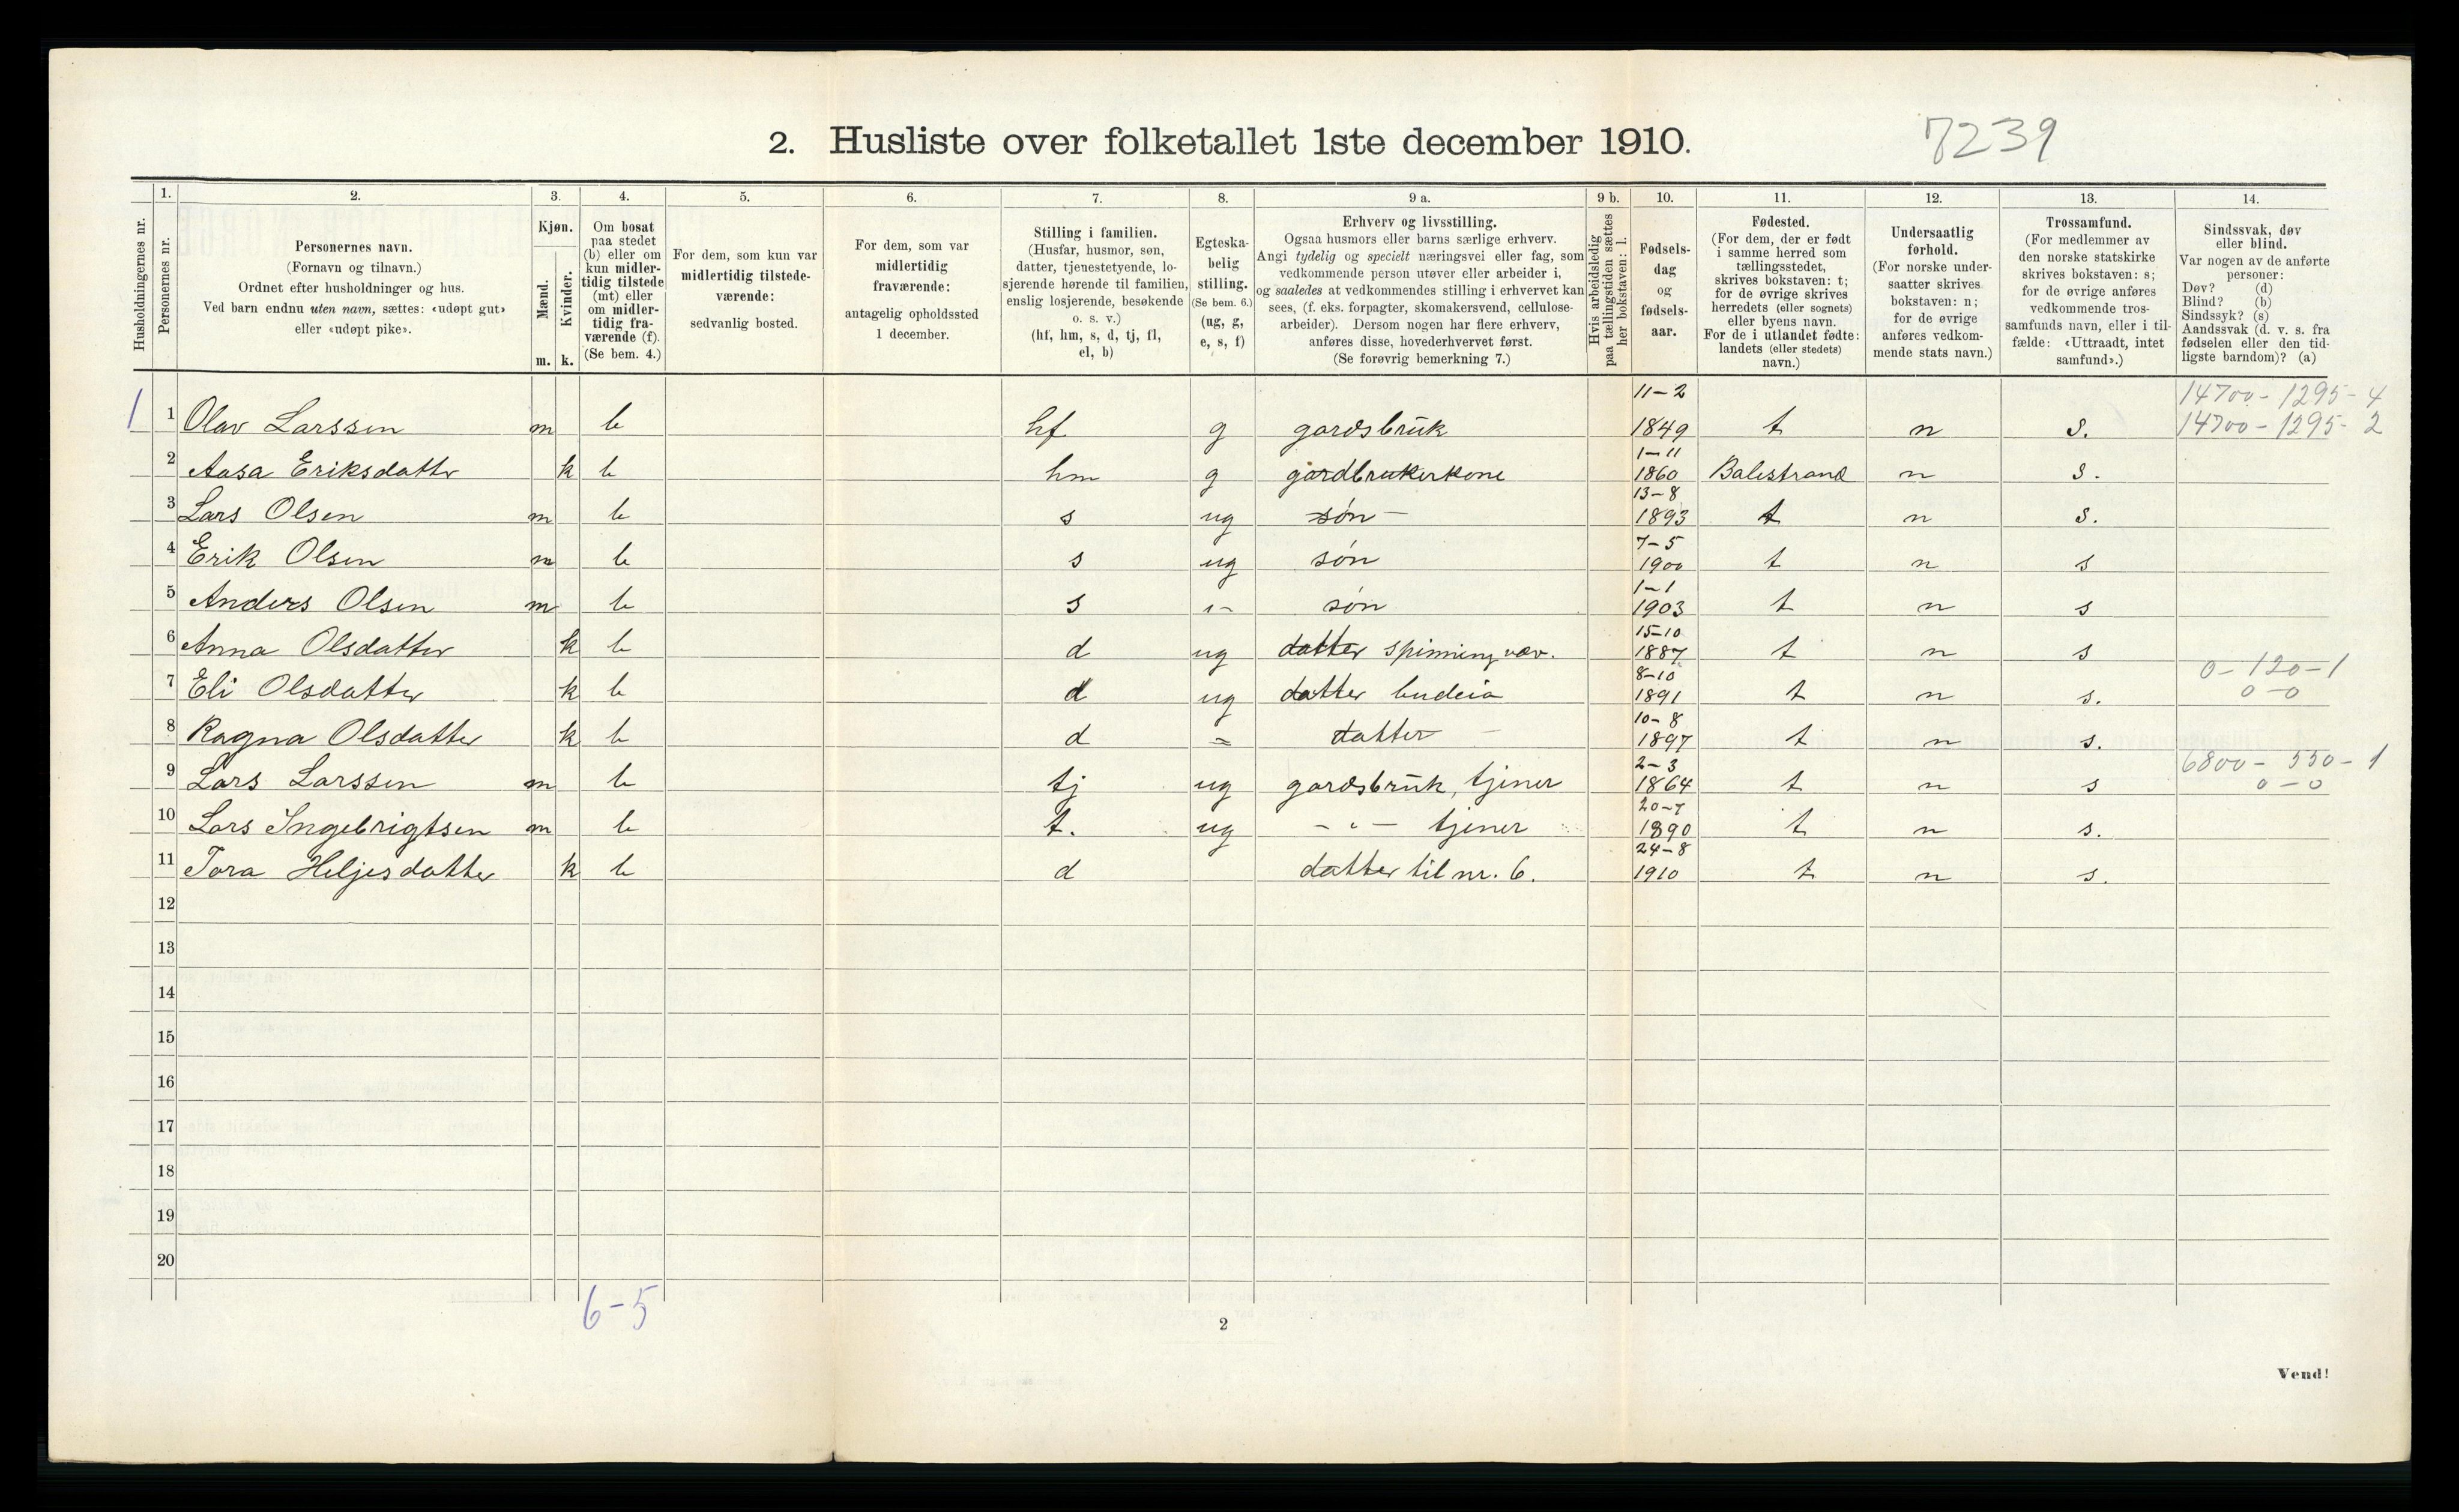 2. Husliste over folketallet 1ste december 1910.
7239
Husholdningernes nr.
1. Personernes nr.
2. Personernes navn.
(Fornavn og tilnavn.)
Ordnet efter husholdninger og hus.
Ved barn endnu uten navn, sættes: «udøpt gut»
eller «udøpt pike».
3. Kjøn.
Mænd. m.
Kvinder. k.
4. Om bosat
paa stedet
(b) eller om
kun midler-
tidig tilstede
(mt) eller
om midler-
tidig fra-
værende (f).
(Se bem. 4.)
5. For dem, som kun var
midlertidig tilstede-
værende:
sedvanlig bosted.
6. For dem, som var
midlertidig
fraværende:
antagelig opholdssted
1 december.
7. Stilling i familien.
(Husfar, husmor, søn,
datter, tjenestetyende, lo-
sjerende hørende til familien,
enslig losjerende, besøkende
o. s. v.)
(hf, hm, s, d, tj, fl,
el, b)
8. Egteska-
belig
stilling.
(Se bem. 6.)
(ug, g,
e, s, f)
9 a. Erhverv og livsstilling.
Ogsaa husmors eller barns særlige erhverv.
Angi tydelig og specielt næringsvei eller fag, som
vedkommende person utøver eller arbeider i,
og saaledes at vedkommendes stilling i erhvervet kan
sees, (f. eks. forpagter, skomakersvend, cellulose-
arbeider). Dersom nogen har flere erhverv,
anføres disse, hovederhvervet først.
(Se forøvrig bemerkning 7.)
9 b. Hvis arbeidsledig
paa tællingstiden sættes
her bokstaven: l.
10. Fødsels-
dag
og
fødsels-
aar.
11. Fødested.
(For dem, der er født
i samme herred som
tællingsstedet,
skrives bokstaven: t;
for de øvrige skrives
herredets (eller sognets)
eller byens navn.
For de i utlandet fødte:
landets (eller stedets)
navn.)
12. Undersaatlig
forhold.
(For norske under-
saatter skrives
bokstaven: n;
for de øvrige
anføres vedkom-
mende stats navn.)
13. Trossamfund.
(For medlemmer av
den norske statskirke
skrives bokstaven: s;
for de øvrige anføres
vedkommende tros-
samfunds navn, eller i til-
fælde: «Uttraadt, intet
samfund».)
14. Sindssvak, døv
eller blind.
Var nogen av de anførte
personer:
Døv? (d)
Blind? (b)
Sindssyk? (s)
Aandssvak (d. v. s. fra
fødselen eller den tid-
ligste barndom)? (a)
14700 - 1295 - 4
1 1 Olav Larssen m b hf g gardsbruk 11-2 1849 t n s. 14700 - 1295 - 2
2 Aasa Eriksdatter k b hm g gardbrukerkone 1-11 1860 Balestrand n s.
3 Lars Olsen m b s ug søn - 13-8 1893 t n s.
4 Erik Olsen m b s ug søn 7-5 1900 t n s
5 Anders Olsen m b s søn 1-1 1903 t n s
6 Anna Olsdatter k b d ug datter spinning, væv. 15-10 1887 t n s
0 - 120 - 1
7 Eli Olsdatter k b d ug datter budeia 8-10 1891 t n s. 0 - 0
8 Ragna Olsdatter k b d = datter - 10-8 1897 t n s.
6800 - 550 - 1
9 Lars Larssen m b tj ug gardsbruk, tjener 2-3 1864 t n s 0 - 0
10 Lars Ingebrigtsen m b t. ug - " - tjener 20-7 1890 t n s.
11 Tora Heljesdatter k b d datter til nr. 6. 24-8 1910 t n s.
12
13
14
15
16
17
18
19
20
6-5
2
Vend!